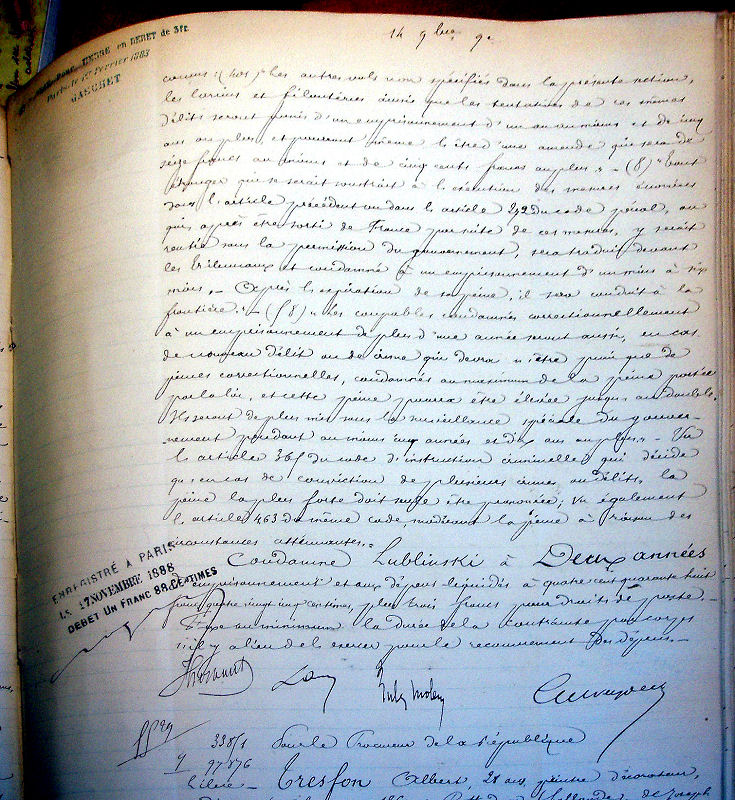 14 9bre 9e
EN DEBET de 3fr.
Février 1883
GAUCHET
connus : (40s) « Les autres vols non spécifiés dans la présente section,
les larcins et filouteries ainsi que les tentatives de ces mêmes
délits seront punis d'un emprisonnement d'un an au moins et de cinq
ans au plus, et pourront même l'être d'une amende qui sera de
seize francs au moins et de cinq cents francs au plus » — (8) « Tout
étranger qui se serait soustrait à l'exécution des mesures énoncées
dans l'article précédent ou dans l'article 272 du code pénal, ou
qui, après être sorti de France par suite de ces mesures, y serait
rentré sans la permission du gouvernement, sera traduit devant
les tribunaux et condamné à un emprisonnement d'un mois à six
mois. — Après l'expiration de sa peine, il sera conduit à la
frontière. » — (58) « Les coupables condamnés correctionnellement
à un emprisonnement de plus d'une année seront aussi, en cas
de nouveau délit ou de crime qui devra n'être puni que de
peines correctionnelles, condamnés au maximum de la peine portée
par la loi, et cette peine pourra être élevée jusqu'au double.
Ils seront de plus mis sous la surveillance spéciale du gouver-
-nement pendant au moins cinq années et dix ans au plus » — Vu
l'article 365 du code d'instruction criminelle qui décide
qu'en cas de conviction de plusieurs crimes ou délits, la
peine la plus forte doit seule être prononcée ; Vu également
l'article 463 du même code modérant la peine à raison des
circonstances atténuantes. —
Condamne Lublinski à Deux années
d'emprisonnement et aux dépens liquidés à quatre cent quarante huit
francs quatre vingt cinq centimes, plus trois francs pour droits de poste. —
Fixe au minimum la durée de la contrainte par corps
s'il y a lieu de l'exercer pour le recouvrement des dépens. —
ENREGISTRÉ A PARIS
LE 17 NOVEMBRE 1888
DEBET UN FRANC 88 CENTIMES
33851 Pour le Procureur de la République
97876
Tresfon Albert, 28 ans, peintre décorateur,
de Joseph